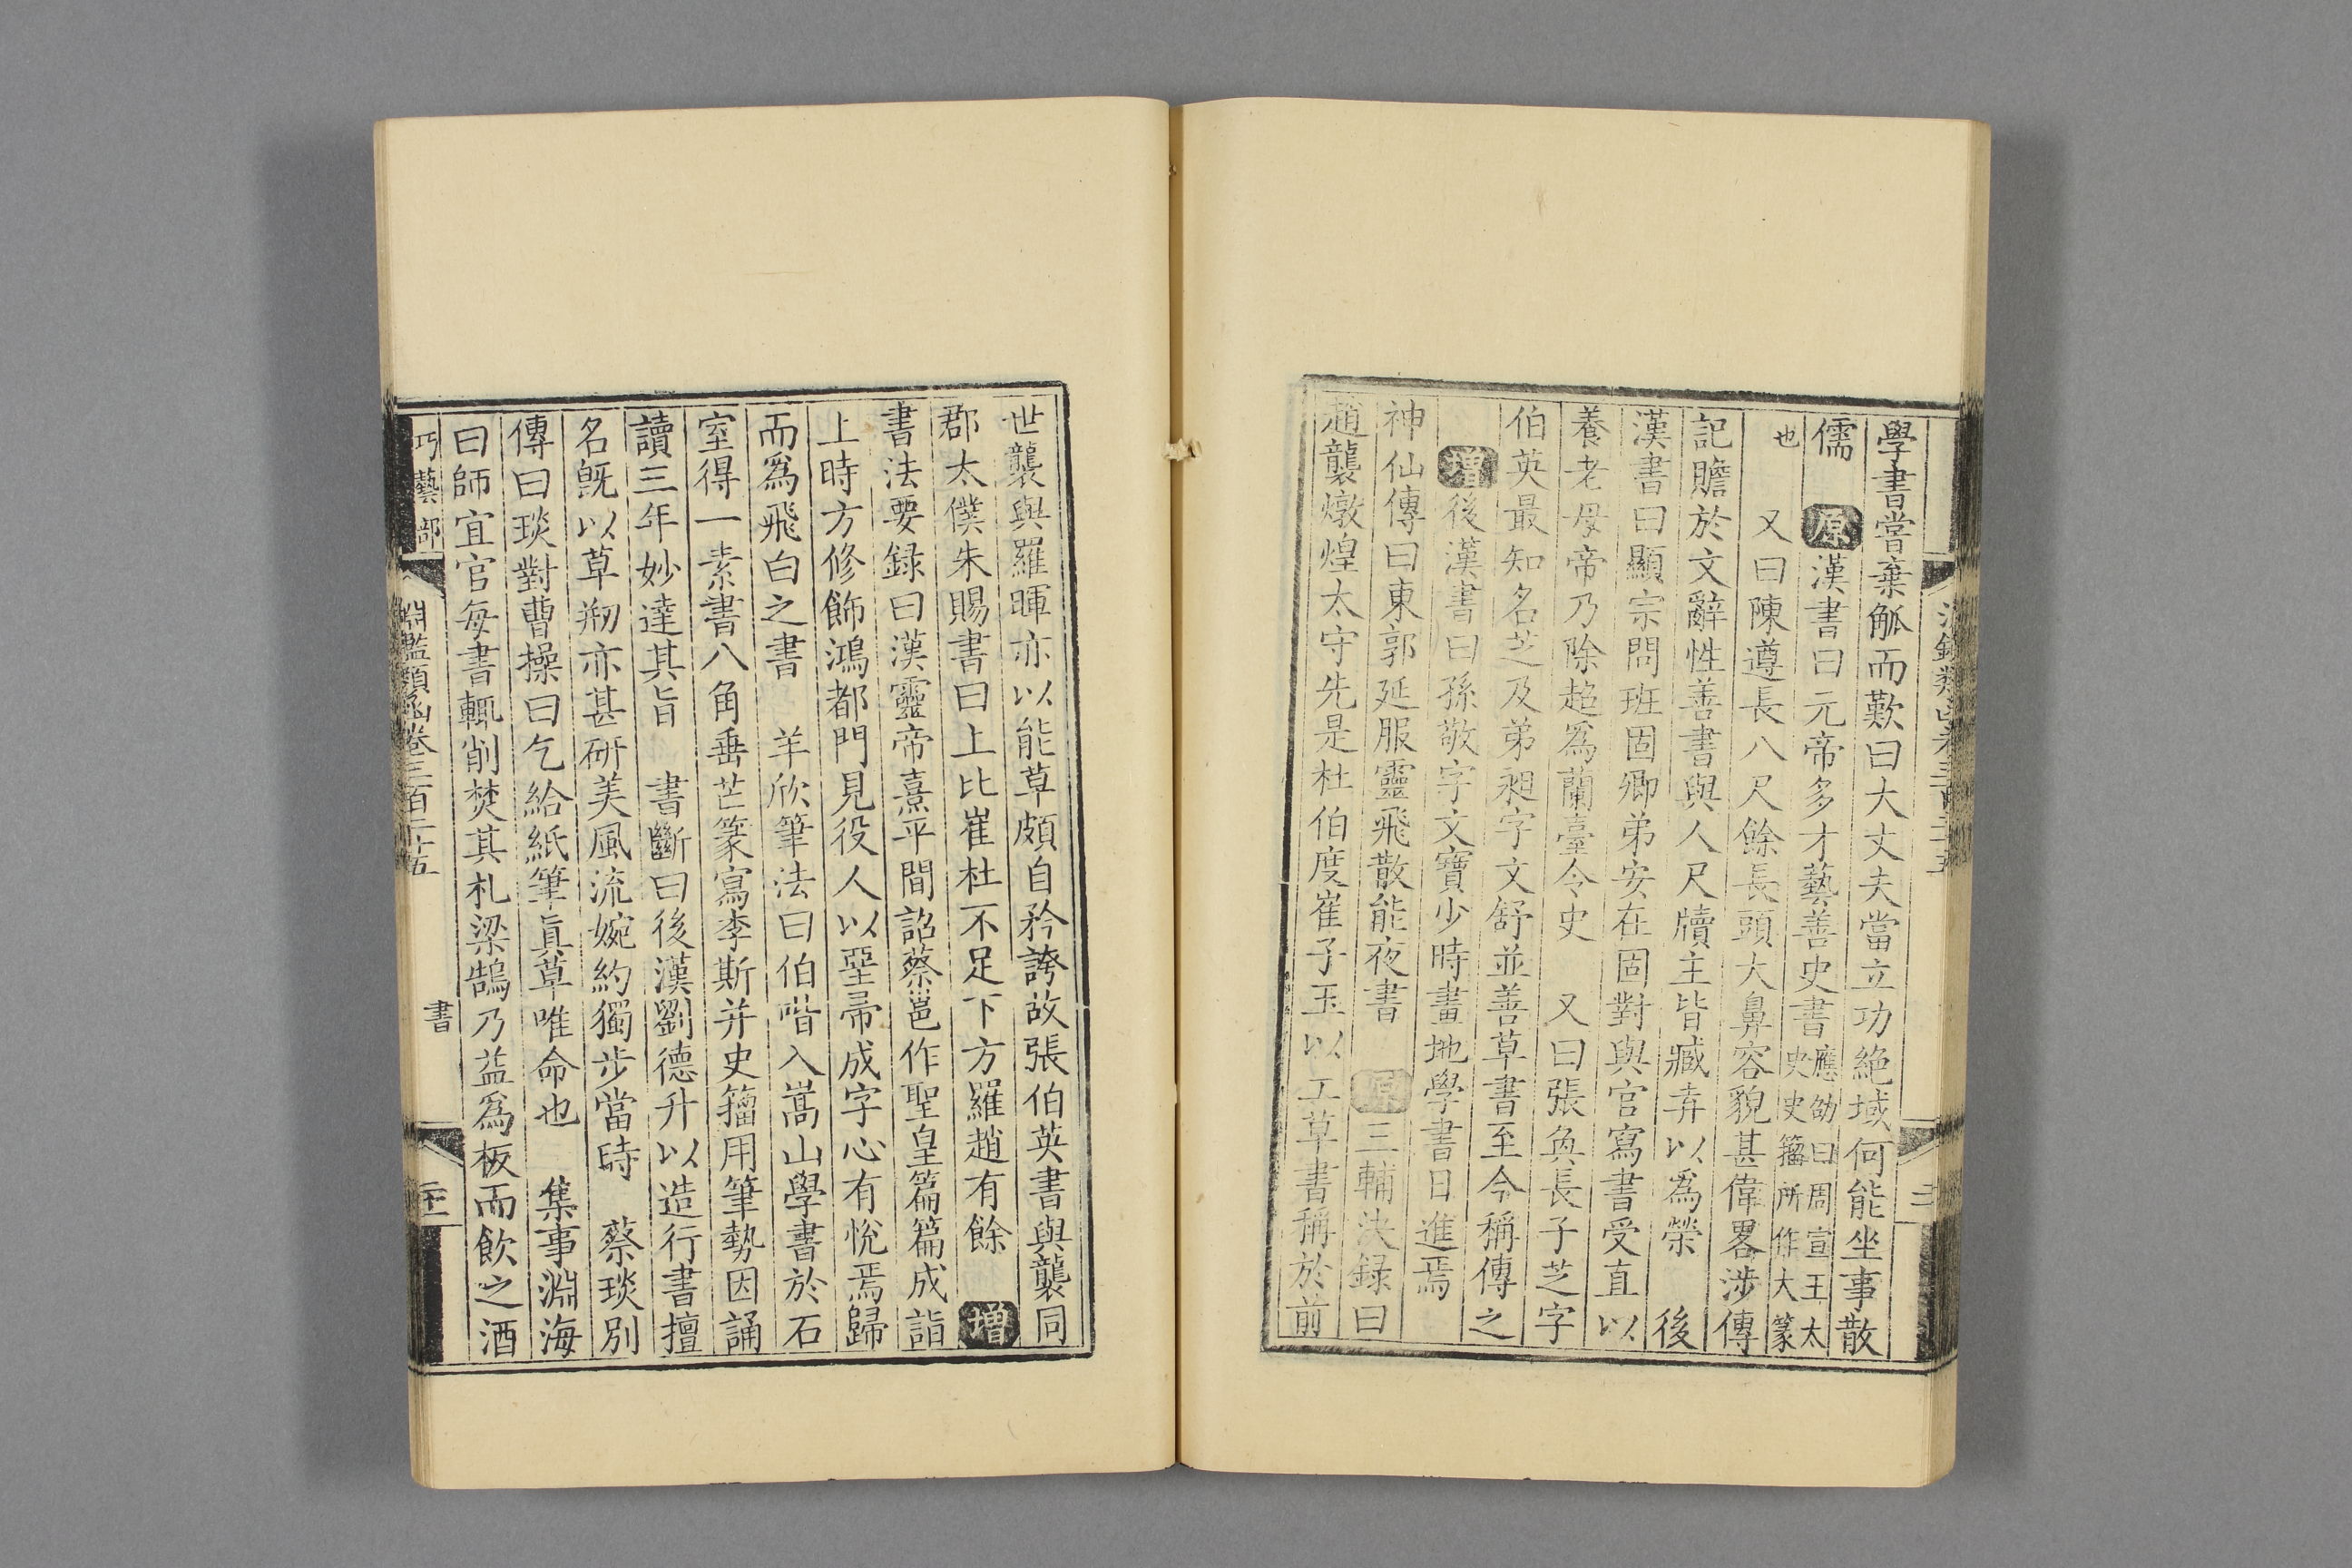 學書嘗棄觚而歎曰大丈夫當立功絶域何能坐事散
儒　原漢書曰元帝多才藝善史書應劭曰周宣王太史史籀所作大篆
也　又曰陳遵長八尺餘長頭大鼻容貌甚偉畧涉傳
記贍於文辭性善書與人尺牘主皆臧弆以爲榮　後
漢書曰顯宗問班固卿弟安在固對與官寫書受直以
養老母帝乃除超爲蘭臺令史　又曰張奐長子芝字
伯英最知名芝及弟昶字文舒並善草書至今稱傳之
增後漢書曰孫敬字文寶少時畫地學書日進焉
神仙傳曰東郭延服靈飛散能夜書　原三輔決録曰
趙襲燉煌太守先是杜伯度崔子玉以工草書稱於前
世襲與羅暉亦以能草頗自矜誇故張伯英書與襲同
郡太僕朱賜書曰上比崔杜不足下方羅趙有餘　增
書法要録曰漢靈帝熹平間詔蔡邕作聖皇篇篇成詣
上時方修飾鴻都門見役人以堊帚成字心有悅焉歸
而爲飛白之書　羊欣筆法曰伯喈入嵩山學書於石
室得一素書八角垂芒篆寫李斯并史籀用筆勢因誦
讀三年妙達其旨　書斷曰後漢劉德升以造行書擅
名旣以草刱亦甚研美風流婉約獨步當時　蔡琰別
傳曰琰對曹操曰乞給紙筆眞草唯命也　集事淵海
曰師宜官每書輒削焚其札梁鵠乃益爲板而飲之酒
巧藝部　淵鑑類函卷三百二十五　書